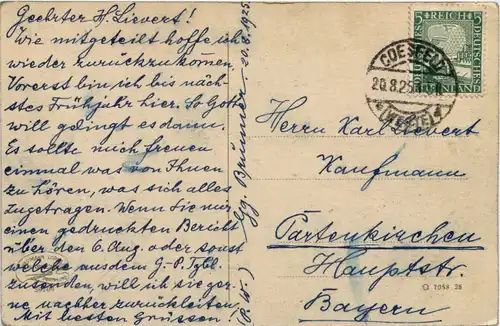 Geehrter H. Lievert!
Wie mitgeteilt hoffe ich
wieder zurückzukomen.
Vorerst bin ich bis näch-
stes Frühjahr hier. So Gott
will gelingt es dann.
Es sollte mich freuen
einmal was von Ihnen
zu hören, was sich alles
zugetragen. Wenn Sie mir
einen gedruckten Bericht
über den 6. Aug. oder sonst
welche aus dem G.-P. Tgbl.
zusenden, will ich sie ger-
ne nachher zurückleiten.
Mit besten Grüssen!
(P. W.) Gg. Brunner - 20.8.1925.
5 DEUTSCHES REICH 5
COESFELD
20.8.25
(WESTF)
Herrn Karl Lievert
Kaufmann
Partenkirchen
Hauptstr.
Bayern
G 7058 26